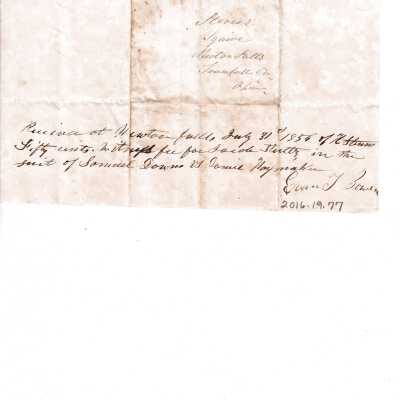 Squire
Newton Falls
Trumbull Co
Ohio
Received at Newton falls July 31 1856 of H
Fifty cents. Witness fee for Jacob in the
suit of Samuel Downs vs Daniel Haymaker
2016.19.77